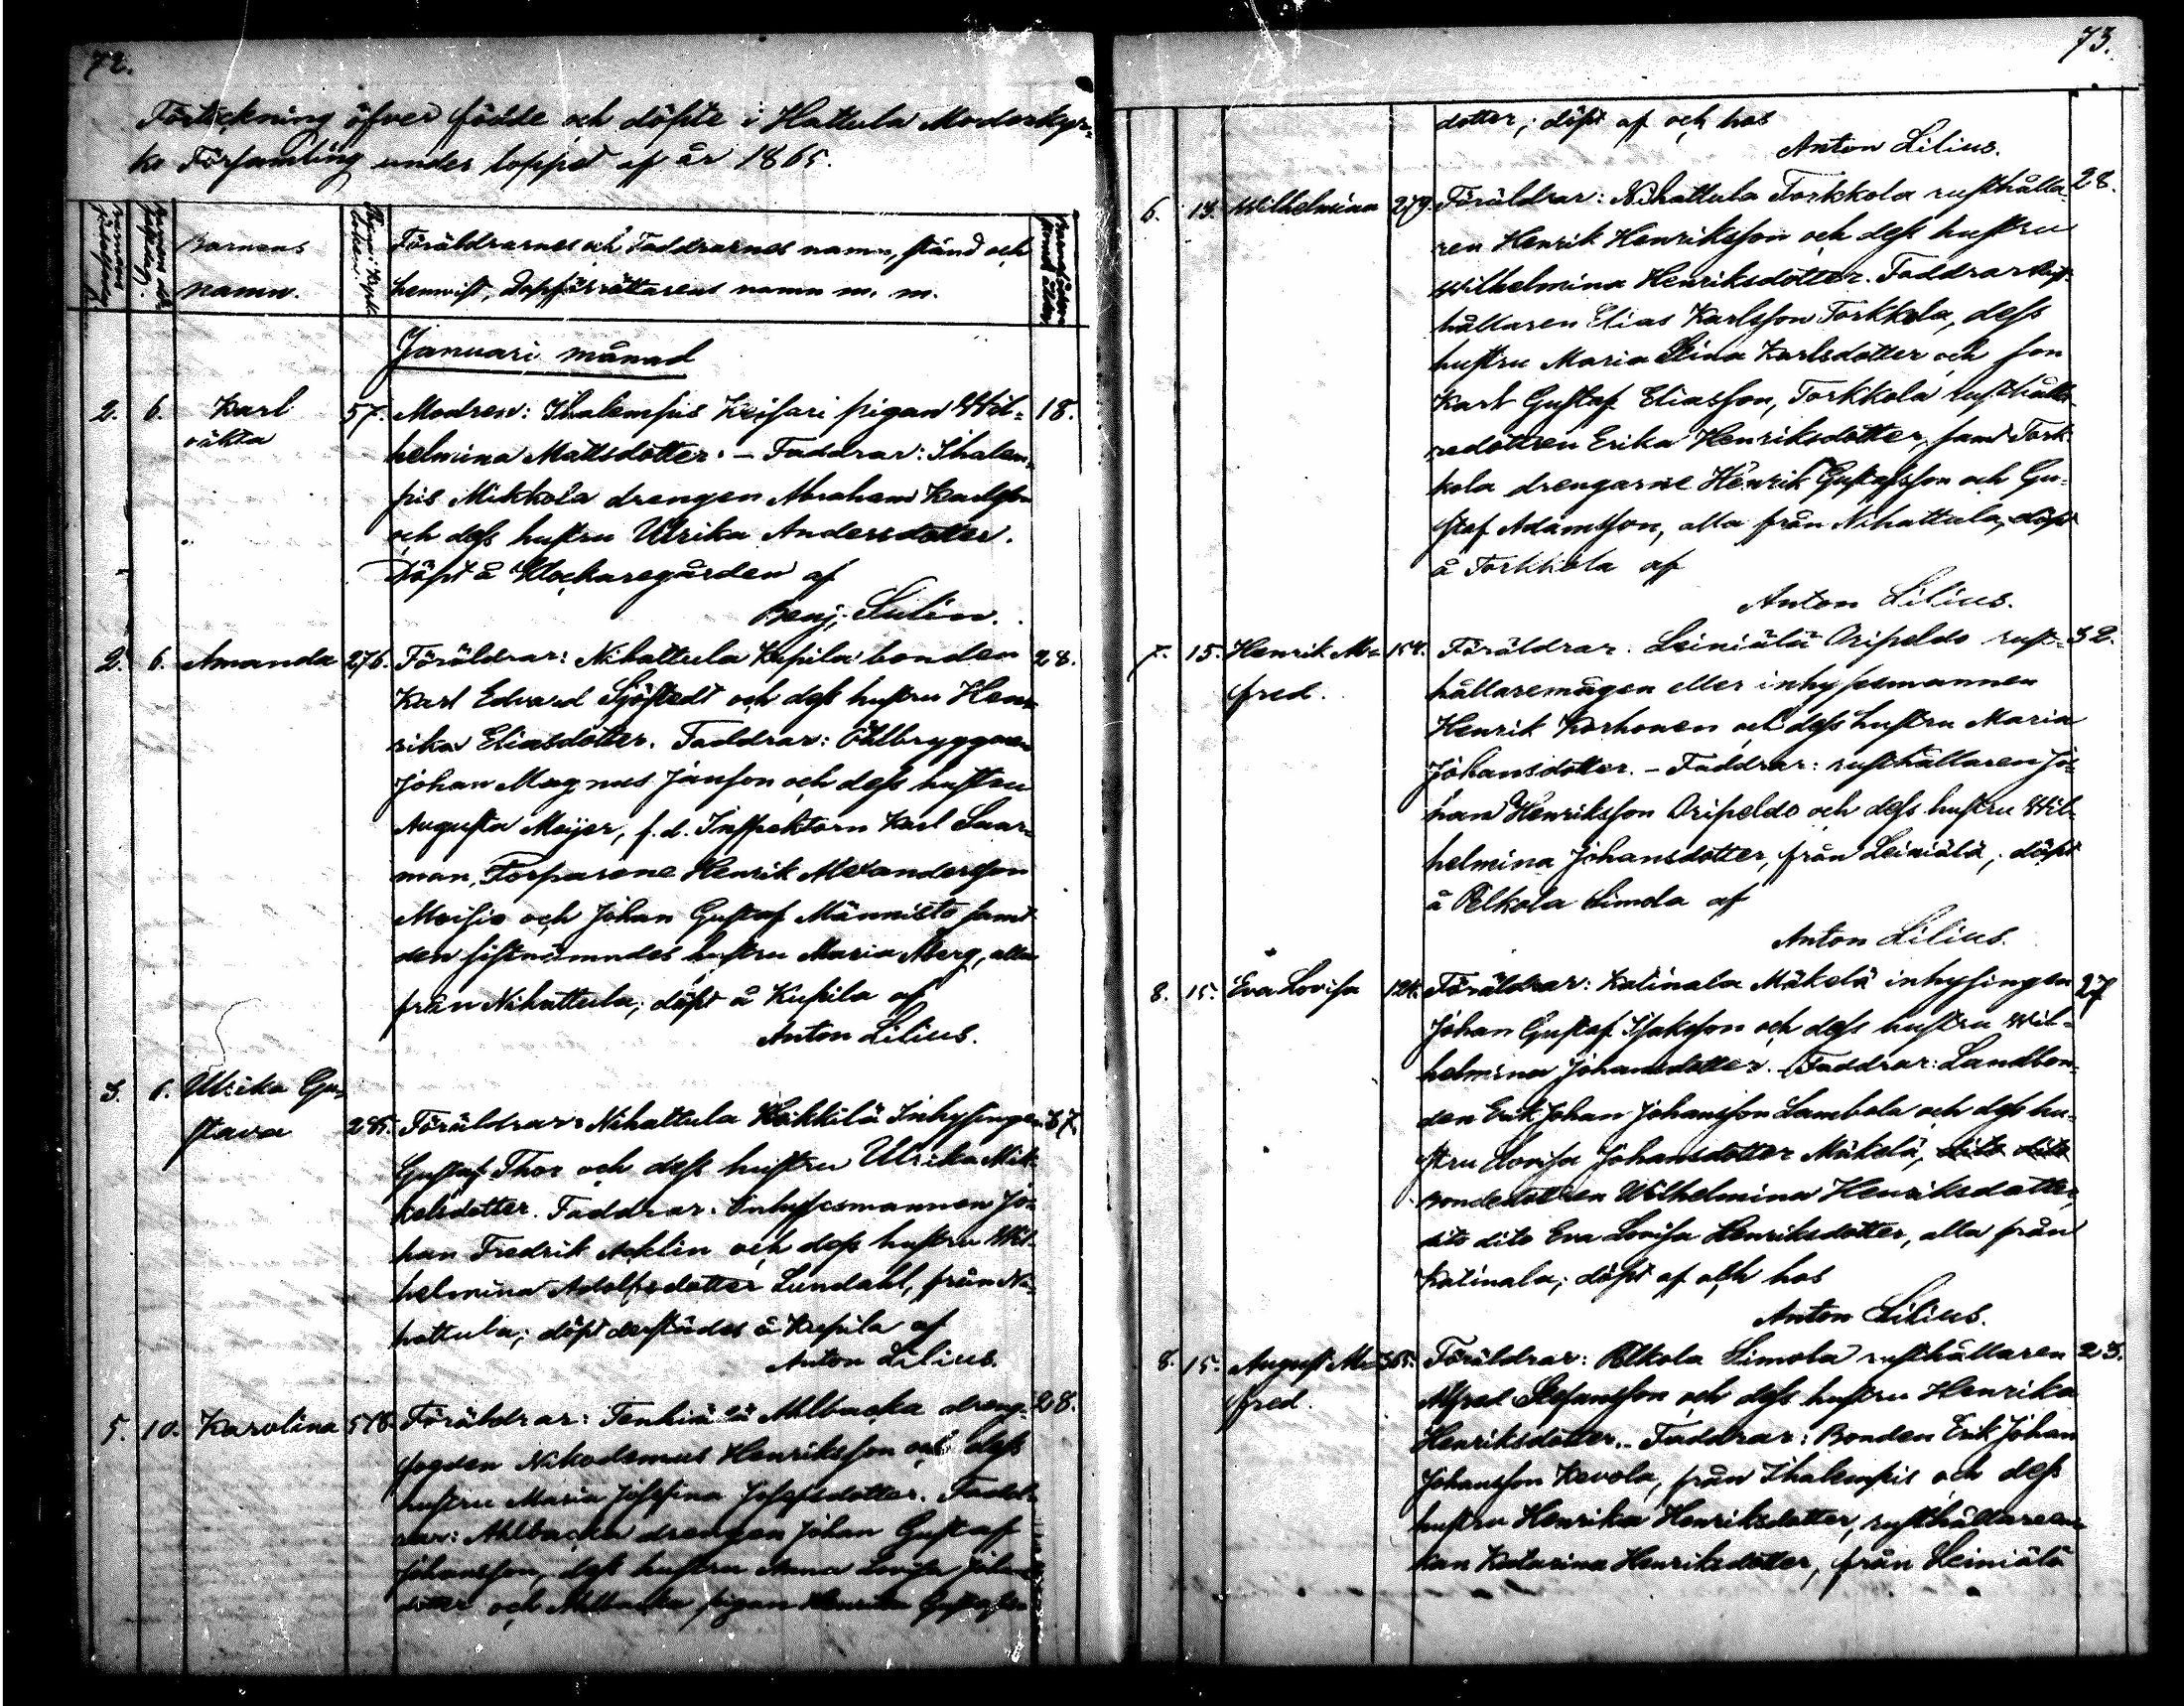 72.
Förteckning öfver födde och döpte i Hattula Moderkyr-
ko Församling under loppet af år 1865.
Barnens
namn.
Föräldrarnes och Faddrarnes namn, stånd och
hemvist, Dopförrättarens namn m. m.
Januari månad
2. 6. Karl 57. Modren: Ihalempis Keisari pigan Wil- 18.
oäkta
helmina Mattsdotter. – Faddrar: Ihalem-
pis Mikkola drengen Abraham Karlsson
och dess hustru Ulrika Andersdotter.
Döpt å Klockaregården af
Benj. Sulin.
2. 6. Amanda 276. Föräldrar: Nihattula Kupila bonden 28.
Karl Edvard Sjöstedt och dess hustru Hen-
rika Eliasdotter. Faddrar: Ölbryggaren
Johan Magnus Janson och dess hustru
Augusta Meijer, f. d. Inspektorn Karl Saar-
man, Torparene Henrik Alexandersson
Moisio och Johan Gustaf Männistö samt
den sistnämndes hustru Maria Åberg, alla
från Nihattula; döpt å Kupila af
Anton Lilius.
3. 6. Ulrika Gu-
stava 285. Föräldrar: Nihattula Heikkilä Inhysingen 37.
Gustaf Thor och dess hustru Ulrika Mik-
kelsdotter. Faddrar: Inhysesmannen Jo-
han Fredrik Acklin och dess hustru Wil-
helmina Adolfsdotter Lundahl, från Ni-
hattula; döpt derstädes å Kupila af
Anton Lilius.
5. 10. Karolina 578. Föräldrar: Tenhiälä Ahlbacka dreng- 28.
fogden Nikodemus Henriksson och dess
hustru Maria Josefina Josefsdotter. Fadd-
rar: Ahlbacka drengen Johan Gustaf
Johansson, dess hustru Anna Lovisa Johans-
dotter och Ahlbacka pigan Henrika Gustafs-
73.
dotter; döpt af och hos
Anton Lilius.
6. 14. Wilhelmina 279. Föräldrar: Nihattula Torkkola rusthålla- 28.
ren Henrik Henriksson och dess hustru
Wilhelmina Henriksdotter. Faddrar Rust-
hållaren Elias Karlsson Torkkola, dess
hustru Maria Stina Karlsdotter och son
Karl Gustaf Eliasson, Torkkola rusthålla-
redottren Erika Henriksdotter, samt Tork-
kola drengarne Henrik Gustafsson och Gu-
staf Adamsson, alla från Nihattula; döpt
å Torkkola af
Anton Lilius.
7. 15. Henrik Al- 154. Föräldrar: Leiniälä Oripeldo rust- 32.
fred.
hållaremågen eller inhysesmannen
Henrik Korhonen och dess hustru Maria
Johansdotter. – Faddrar: rusthållaren Jo-
han Henriksson Oripeldo och dess hustru Wil-
helmina Johansdotter, från Leiniälä; döpt
å Pelkola Simola af
Anton Lilius.
8. 15. Eva Lovisa 124. Föräldrar: Katinala Mäkelä inhysingen 27
Johan Gustaf Isaksson och dess hustru Wil-
helmina Johansdotter. – Faddrar: Landbon-
den Erik Johan Johansson Lambola och dess hu-
stru Lovisa Johansdotter Mäkelä, dito dito
bondedottren Wilhelmina Henriksdotter,
dito dito Eva Lovisa Henriksdotter, alla från
Katinala; döpt af och hos
Anton Lilius.
8. 15. August Al- 365. Föräldrar: Pelkola Simola rusthållaren 23.
fred.
Alfred Stefansson och dess hustru Henrika
Henriksdotter. – Faddrar: Bonden Erik Johan
Johansson Kevola, från Ihalempis och dess
hustru Henrika Henriksdotter, rusthållareen-
kan Katarina Henriksdotter, från Leiniälä